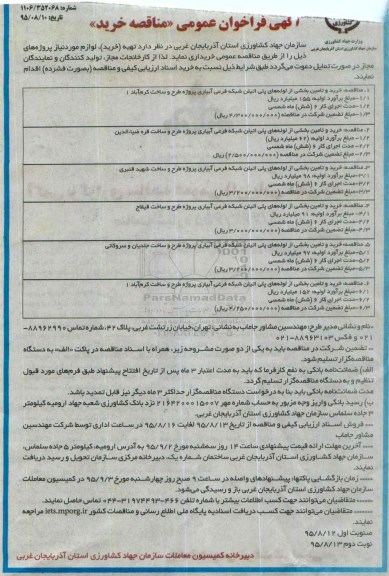 شماره: ۱۱۰۶/۳۵۲۰۶۸
تاریخ: ۹۵/۰۸/۱۰
آگهی فراخوان عمومی «مناقصه خرید»
وزارت جهاد کشاورزی
سازمان جهاد کشاورزی استان آذربایجان غربی
سازمان جهاد کشاورزی استان آذربایجان غربی در نظر دارد تهیه (خرید)، لوازم موردنیاز پروژه‌های
ذیل را از طریق مناقصه عمومی خریداری نماید. لذا از کارخانجات مجاز، تولید کنندگان و نمایندگان
مجاز در صورت تمایل دعوت می‌گردد طبق شرایط ذیل نسبت به خرید اسناد ارزیابی کیفی و مناقصه (بصورت فشرده) اقدام
نمایند.
۱. مناقصه، خرید و تامین بخشی از لوله‌های پلی اتیلن شبکه فرعی آبیاری پروژه طرح و ساخت کرم‌آباد ۱
۱/۱-مبلغ برآورد اولیه: ۱۵۵ میلیارد ریال
۱/۲-مدت اجرای کار ۶ (شش) ماه شمسی
۱/۳-مبلغ تضمین شرکت در مناقصه (
۲. مناقصه، خرید و تامین بخشی از لوله‌های پلی اتیلن شبکه فرعی آبیاری پروژه طرح و ساخت قره میناءالدین
۲/۱-مبلغ برآورد اولیه: (۶۲ میلیارد ریال)
۲/۲-مدت اجرای کار ۶ (شش) ماه شمسی
۲/۳-مبلغ تضمین شرکت در مناقصه (۲/۵۰۰/۰۰۰/۰۰۰ ریال)
۳. مناقصه، خرید و تامین بخشی از لوله‌های پلی اتیلن شبکه فرعی آبیاری پروژه طرح و ساخت شهید قنبری
۳/۱-مبلغ برآورد اولیه: میلیارد ریال
۳/۲-مدت اجرای کار ۶ (شش) ماه شمسی
۳/۳-مبلغ تضمین شرکت در مناقصه (۳/۲۰۰/۰۰۰/۰۰۰ ریال)
۴. مناقصه، خرید و تامین بخشی از لوله‌های پلی اتیلن شبکه فرعی آبیاری پروژه طرح و ساخت قیقاج
۴/۱-مبلغ برآورد اولیه: ۹۱ میلیارد ریال
۴/۲-مدت اجرای کار ۶ (شش) ماه شمسی
۴/۳-مبلغ تضمین شرکت در مناقصه
۵. مناقصه، خرید و تامین بخشی از لوله‌های پلی اتیلن شبکه فرعی آبیاری پروژه طرح و ساخت جلدیان و سروکانی
۵/۱-مبلغ برآورد اولیه: ۹۷ میلیارد ریال
۵/۲-مدت اجرای کار ۶ (شش) ماه شمسی
۵/۳-مبلغ تضمین شرکت در مناقصه (۳/۲۰۰/۰۰۰/۰۰۰ ریال)
۶. مناقصه، خرید و تامین بخشی از لوله‌های پلی اتیلن شبکه فرعی آبیاری پروژه طرح و ساخت کرم‌آباد ۱
۶/۱-مبلغ برآورد اولیه: ۱۵۲ میلیارد ریال
۶/۲-مدت اجرای کار ۶ (شش) ماه شمسی
۶/۳-مبلغ تضمین شرکت در مناقصه
ParsNamadData
-نام و نشانی مدیر طرح: مهندسین مشاور جاماب به نشانی: تهران، خیابان زرتشت غربی، پلاک ۴۲، شماره تماس ۸۸۹۶۲۹۹۰-
۰۲۱ و فکس ۸۸۹۶۳۱۰۳-۰۲۱
— تضمین شرکت در مناقصه باید به یکی از دو صورت مشروحه زیر، همراه با اسناد مناقصه در پاکت «الف» به دستگاه
مناقصه‌گزار تسلیم شود.
الف) ضمانت‌نامه بانکی به نفع کارفرما که باید به مدت اعتبار ۳ ماه پس از تاریخ افتتاح پیشنهاد طبق فرم‌های مورد قبول
تنظیم و به دستگاه مناقصه‌گزار تسلیم گردد.
مدت ضمانت‌نامه بانکی باید بنا به درخواست دستگاه مناقصه‌گزار حداکثر ۳ ماه دیگر نیز قابل تمدید باشد.
ب) رسید بانکی واریز وجه مزبور به حساب شماره مهر نزد بانک کشاورزی شعبه جهاد ارومیه کیلومتر
۳ جاده سلماس سازمان جهاد کشاورزی استان آذربایجان غربی.
— فروش اسناد ارزیابی کیفی و مناقصه از تاریخ ۹۵/۸/۱۳ لغایت ۹۵/۸/۱۶ در ساعت اداری توسط شرکت مهندسین
مشاور جاماب
— آخرین مهلت ارائه قیمت پیشنهادی ساعت ۱۴ روز سه‌شنبه مورخ ۹۵/۹/۲ به آدرس ارومیه، کیلومتر ۵ جاده سلماس،
سازمان جهاد کشاورزی استان آذربایجان غربی ساختمان شماره یک، دبیرخانه مرکزی سازمان تحویل و رسید دریافت
نمایند.
— زمان بازگشایی پاکتها، پیشنهادهای واصله در ساعت ۹ صبح روز چهارشنبه مورخ ۹۵/۹/۳ در کمیسیون معاملات
سازمان جهاد کشاورزی استان آذربایجان غربی باز و رسیدگی می‌شود.
— متقاضیان می‌توانند جهت کسب اطلاعات بیشتر با شماره تلفن تماس حاصل نمایند.
— متقاضیان می‌توانند جهت کسب دریافت اسنادبه پایگاه ملی اطلاع رسانی و مناقصات کشور iets.mporg.ir مراجعه
نمایند.
نوبت اول ۹۵/۸/۱۲
نوبت دوم ۹۵/۸/۱۳
دبیرخانه کمیسیون معاملات سازمان جهاد کشاورزی استان آذربایجان غربی